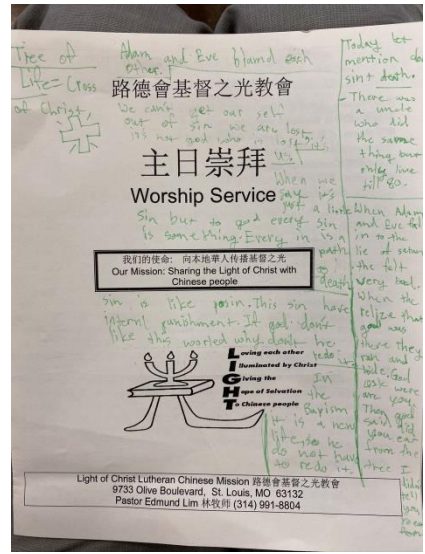 Tree of
Life = Cross
of Christ
Adam and Eve blamd each
other.
路德會基督之光教會
We can't get our self
out of sin we are lost
it's not god who is lost it's
us.
主日崇拜
Worship Service
When we
say it's
just a little
sin but to god every sin
is something. Every in is a
path
to
death
我们的使命: 向本地華人传播基督之光
Our Mission: Sharing the Light of Christ with
Chinese people
sin is like posin. This sin have
internl punishment. If god don't
like this worled why don't he
redo it.
In
the
Baptism
it is a new
life, so he
do not have
to redo it.
Loving each other
Illuminated by Christ
Giving the
Hope of Salvation
To Chinese people
Today let
mention
sin + death.
There was
a uncle
who did
the same
thing but
only live
till 80.
When Adam
and Eve fall
in to the
lie of
the felt
very bad.
When the
relize that
god was
there they
ran and
hide, God
ask were
are you
Then god
said did
you eat
from the
tree I
tell
you
to
eat
from
Light of Christ Lutheran Chinese Mission 路德會基督之光教會
9733 Olive Boulevard, St. Louis, MO 63132
Pastor Edmund Lim 林牧師 (314) 991-8804